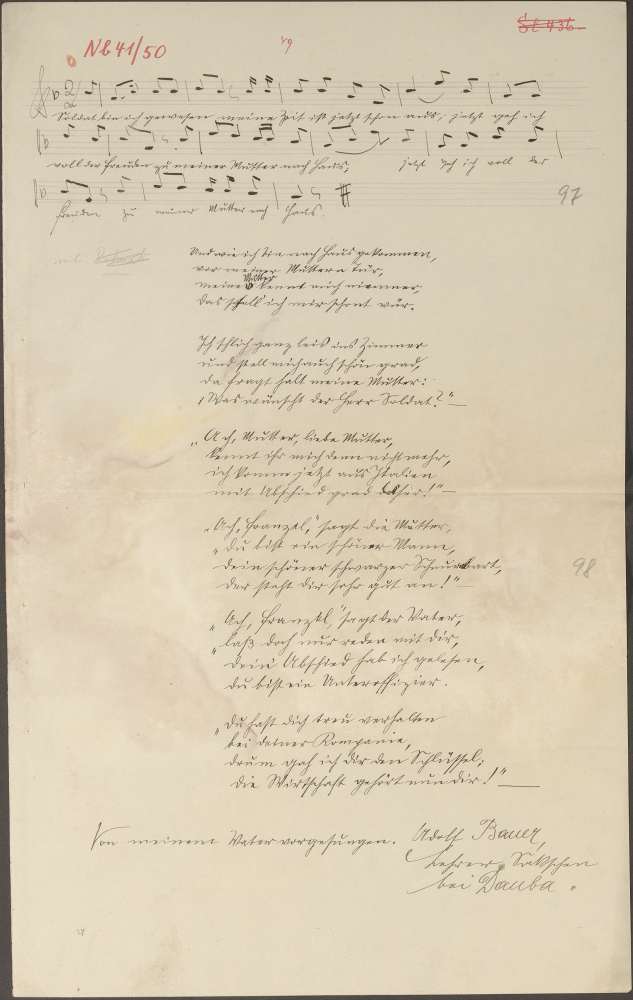 St 436
Nb 41/50
29
Soldat bin ich gewesen, meine Zeit ist jetzt schon aus; jetzt geh ich
voll der Freuden zu meiner Mutter nach Haus, jetzt geh ich voll der
97
Freuden zu meiner Mutter nach Haus.
Und wie ich bin nach Haus gekommen,
vor meiner Muttern Tür,
meine Mutter kennt mich nimmer,
das ich mir schont vür.
Ich schlich ganz leis ins Zimmer
und stell mich auch schön grad,
da fragt halt meine Mutter:
„Was wünscht der Herr Soldat?" —
„Ach, Mutter, liebe Mutter,
kennt ihr mich denn nicht mehr,
ich komme jetzt aus Italien
mit Abschied grad daher!" —
„Ach, Franzel," sagt die Mutter,
„du bist ein schöner Mann,
dein schöner schwarzer Schnurrbart,
der steht dir sehr gut an!" —
98
„Ach, Franzel," sagt der Vater,
„laß doch nur reden mit dir,
dein Abschied hab ich gelesen,
du bist ein Unteroffizier.
„Du hast dich treu verhalten
bei deiner Kompanie,
drum geh ich dir den Schlüssel;
die Wirtschaft gehört nun dir!" —
Von meinem Vater vorgesungen. Adolf Bauer,
Lehrer, Sakschen
bei Dauba.